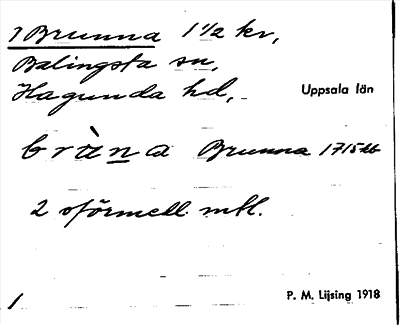 1 Brunna 1 1/2 kr,
Balingsta sn,
Hagunda hd,
Uppsala län
brùna Brunna 1715 kb
2 oförmedl. mtl.
P. M. Lijsing 1918
1